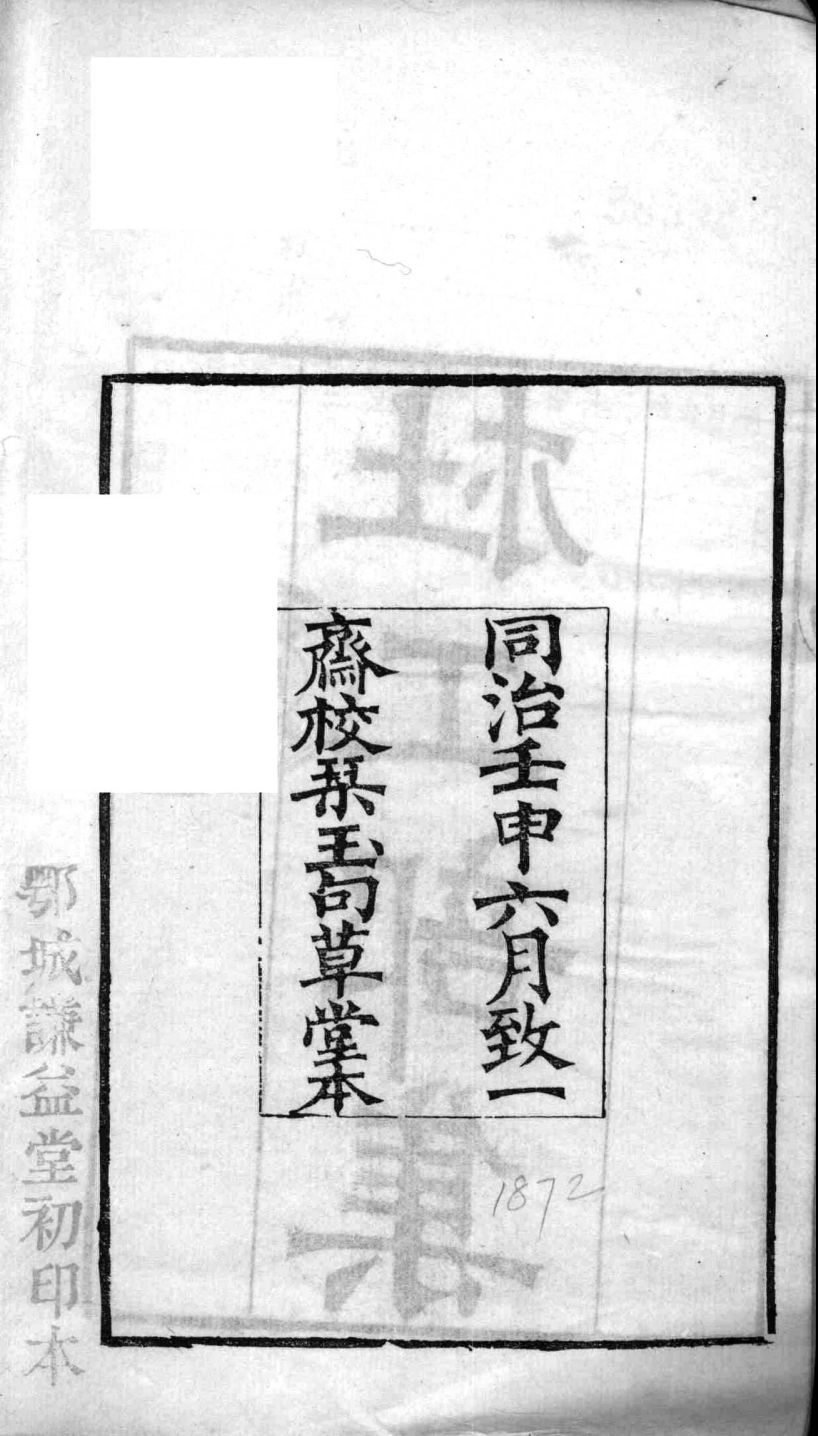 同治壬申六月致一
齋校栞玉句草堂本
1872
鄂城謙益堂初印本
杜工部集